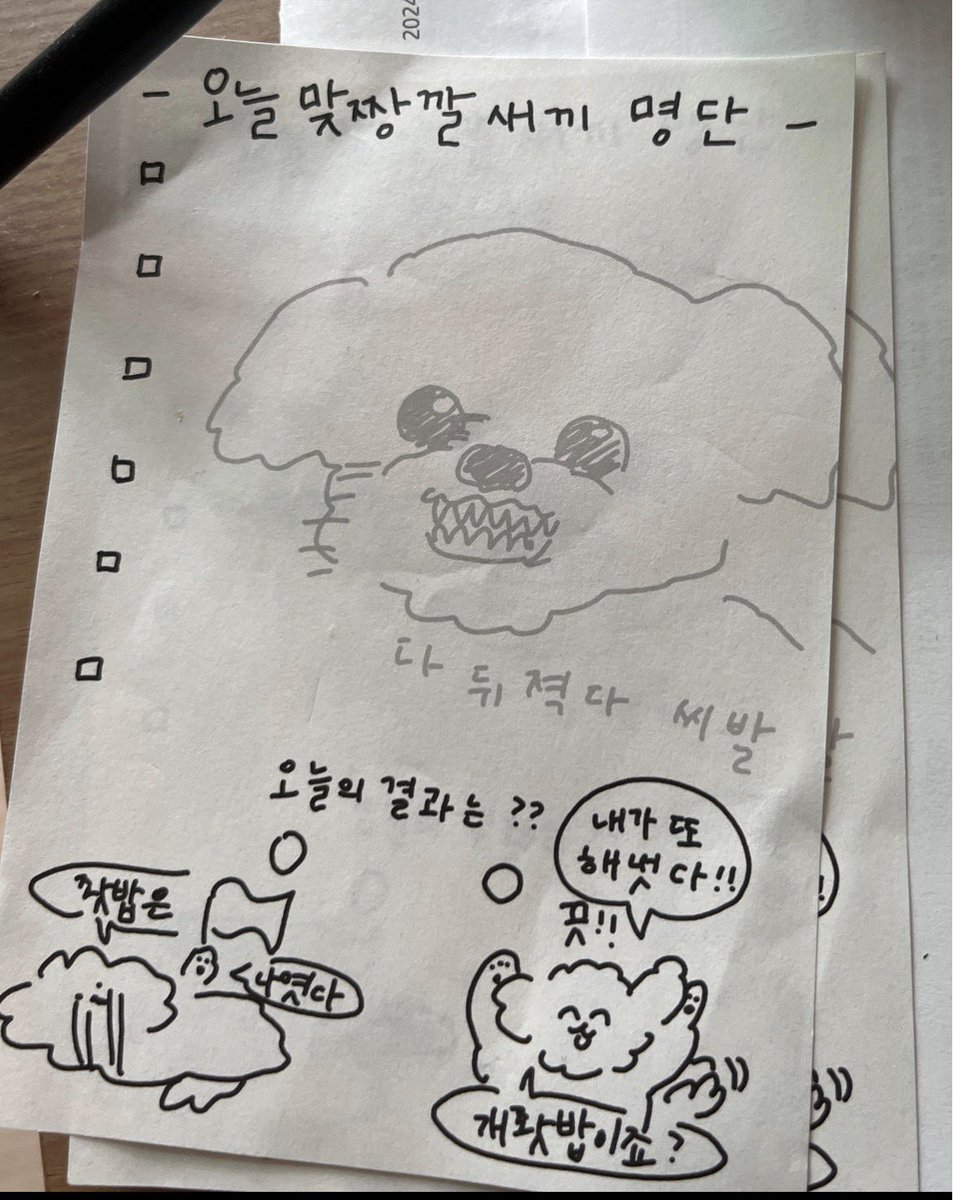 2024
- 오늘 맞짱깔새끼 명단 -
다 뒤졌다 씨발
오늘의 결과는 ??
내가 또
해냇다!!
끗!!
좟밥은
나였다
개좟밥이죠?